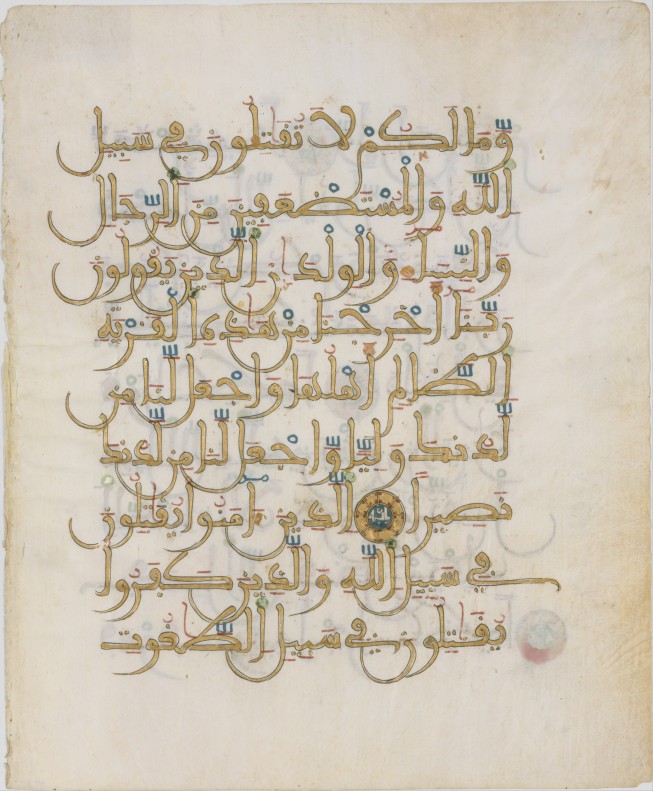 وَمَا لَكُمْ لَا تُقَٰتِلُونَ فِى سَبِيلِ
اِ۬للَّهِ وَالْمُسْتَضْعَفِينَ مِنَ اَ۬لرِّجَالِ
وَالنِّسَآءِ وَالْوِلْدَٰنِ اِ۬لذِينَ يَقُولُونَ
رَبَّنَآ أَخْرِجْنَا مِنْ هَٰذِهِ اِ۬لْقَرْيَةِ
اِ۬لظَّالِمِ أَهْلُهَا وَاجْعَل لَّنَا مِن
لَّدُنكَ وَلِيّاً وَاجْعَل لَّنَا مِن لَّدُنكَ
نَصِيراً اَ۬لذِينَ ءَامَنُواْ يُقَٰتِلُونَ
فِى سَبِيلِ اِ۬للَّهِ وَالذِينَ كَفَرُواْ
يُقَٰتِلُونَ فِى سَبِيلِ اِ۬لطَّٰغُوتِ